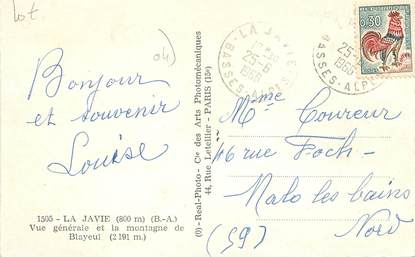 lot
04
Bonjour
et souvenir
Louise
1505 - LA JAVIE (800 m) (B.-A.)
Vue générale et la montagne de
Blayeul (2191 m.)
(O) - Real-Photo - Cie des Arts Photomécaniques
44, Rue Letellier - PARIS (15e)
LA JAVIE
25-6
1966
BASSES-ALPES
0,30
25-6
1966
BASSES-ALPES
Mme Coureur
46 rue Foch -
Malo les bains
Nord
(59)